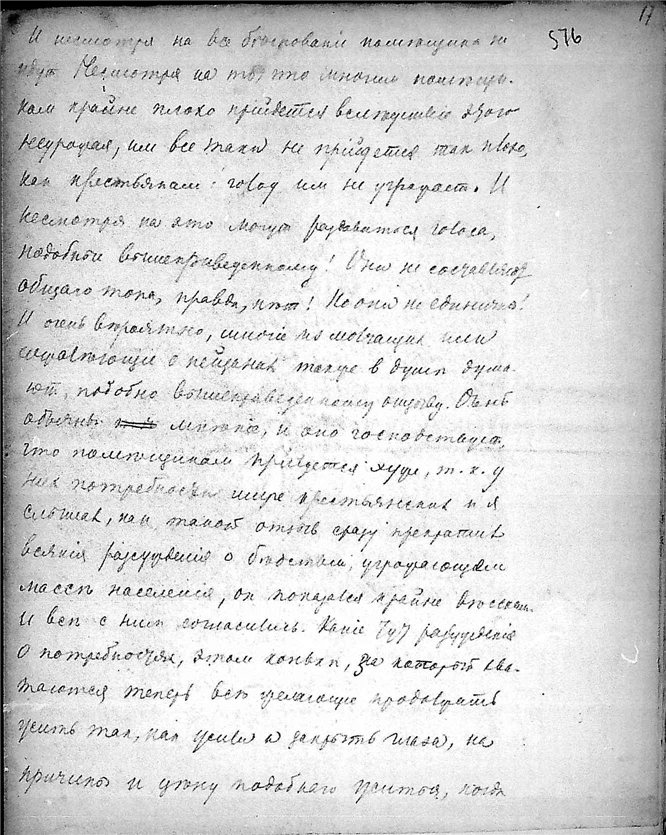 17
576
И несмотря на все помѣщики не
идут. Несмотря на то, что многим помѣщи-
кам крайне плохо прійдется вслѣдствіе этого
неурожая, им все таки не прійдется так плохо,
как крестьянам: голод им не угрожает. И
несмотря на это могут раздаваться голоса,
подобные вышеприведенному! Они не составляют
общаго тона, правда, нѣт! Но они не единичны!
И очень вѣроятно, многіе из молчащих или
о также в души дума-
ют, подобно вышеприведенному отзыву.
обычно мнѣніе, и оно господствует,
что помѣщикам прійдется хуже, т. к. у
них потребности шире крестьянских и я
слышал, как такой отзыв сразу прекратил
всякія разсужденія о бѣдствіи, угрожающем
массѣ населенія, он показался крайне вѣским
И всѣ с ним согласились. Какіе тут разсужденія
о потребностях, этом коньке, за который хва-
таются теперь всѣ желающіе продолжать
жить так, как жили и закрыть глаза, на
причины и цѣну подобнаго житья, когда